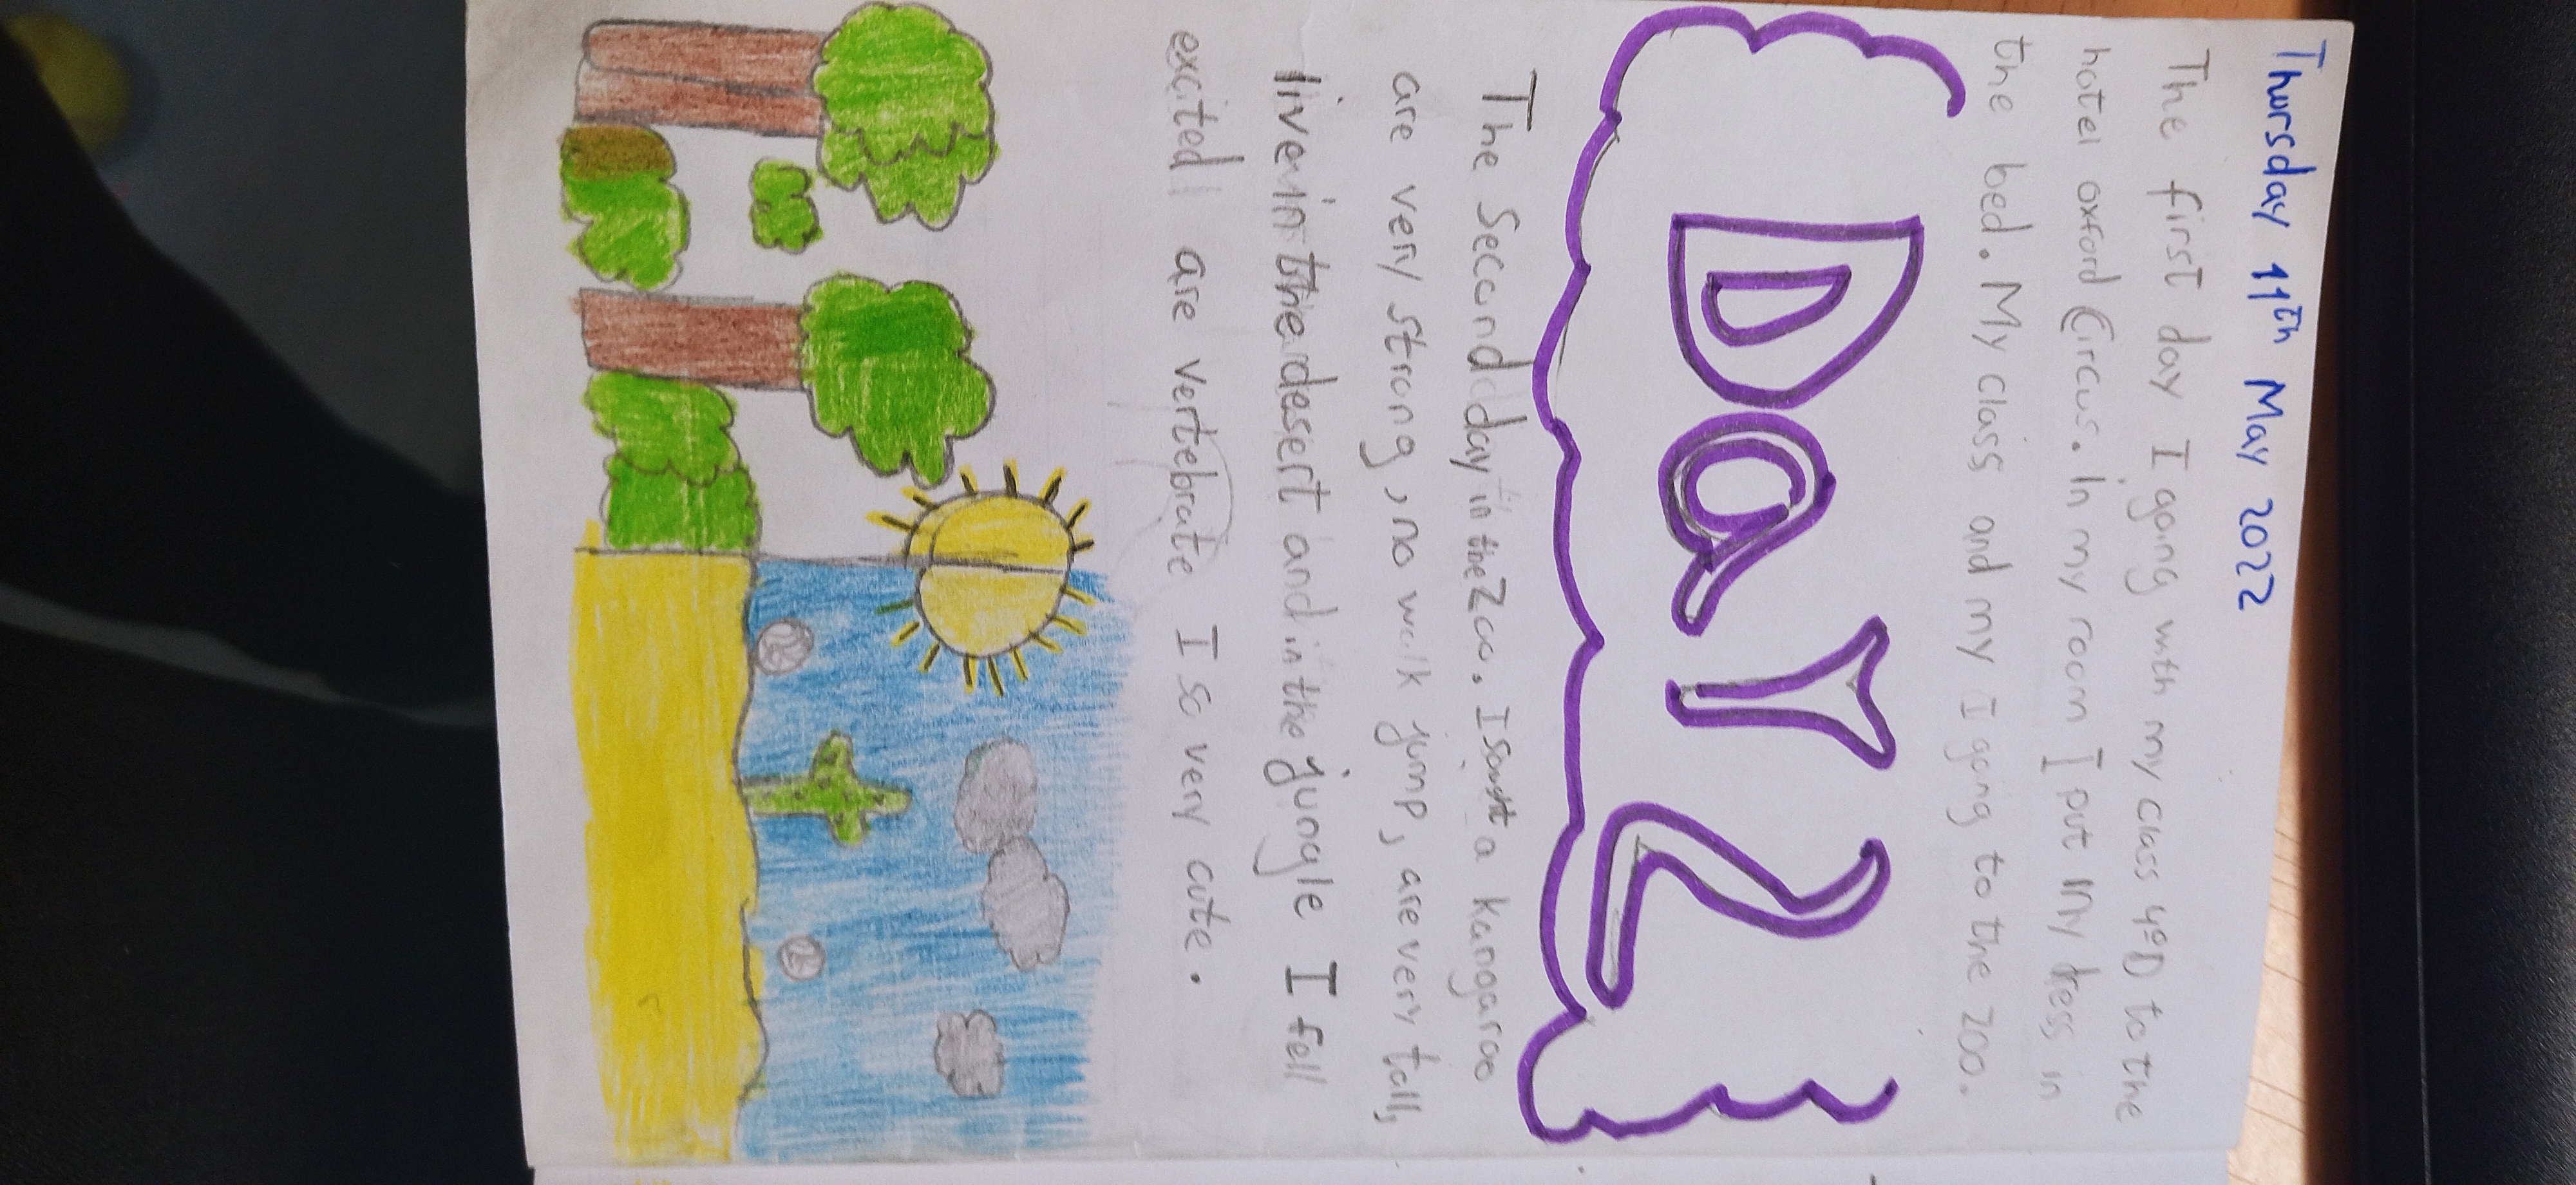 Thursday 11th May 2022
The first day I going with my class 4ºD to the
hotel oxford Circus. In my room I put my dress in
the bed. My class and my I going to the zoo.
Day 2
The Second day in the Zoo. I a kangaroo
are very strong, no walk jump, are very tall,
live in the desert and in the jungle I fell
excited are vertebrate I so very cute.